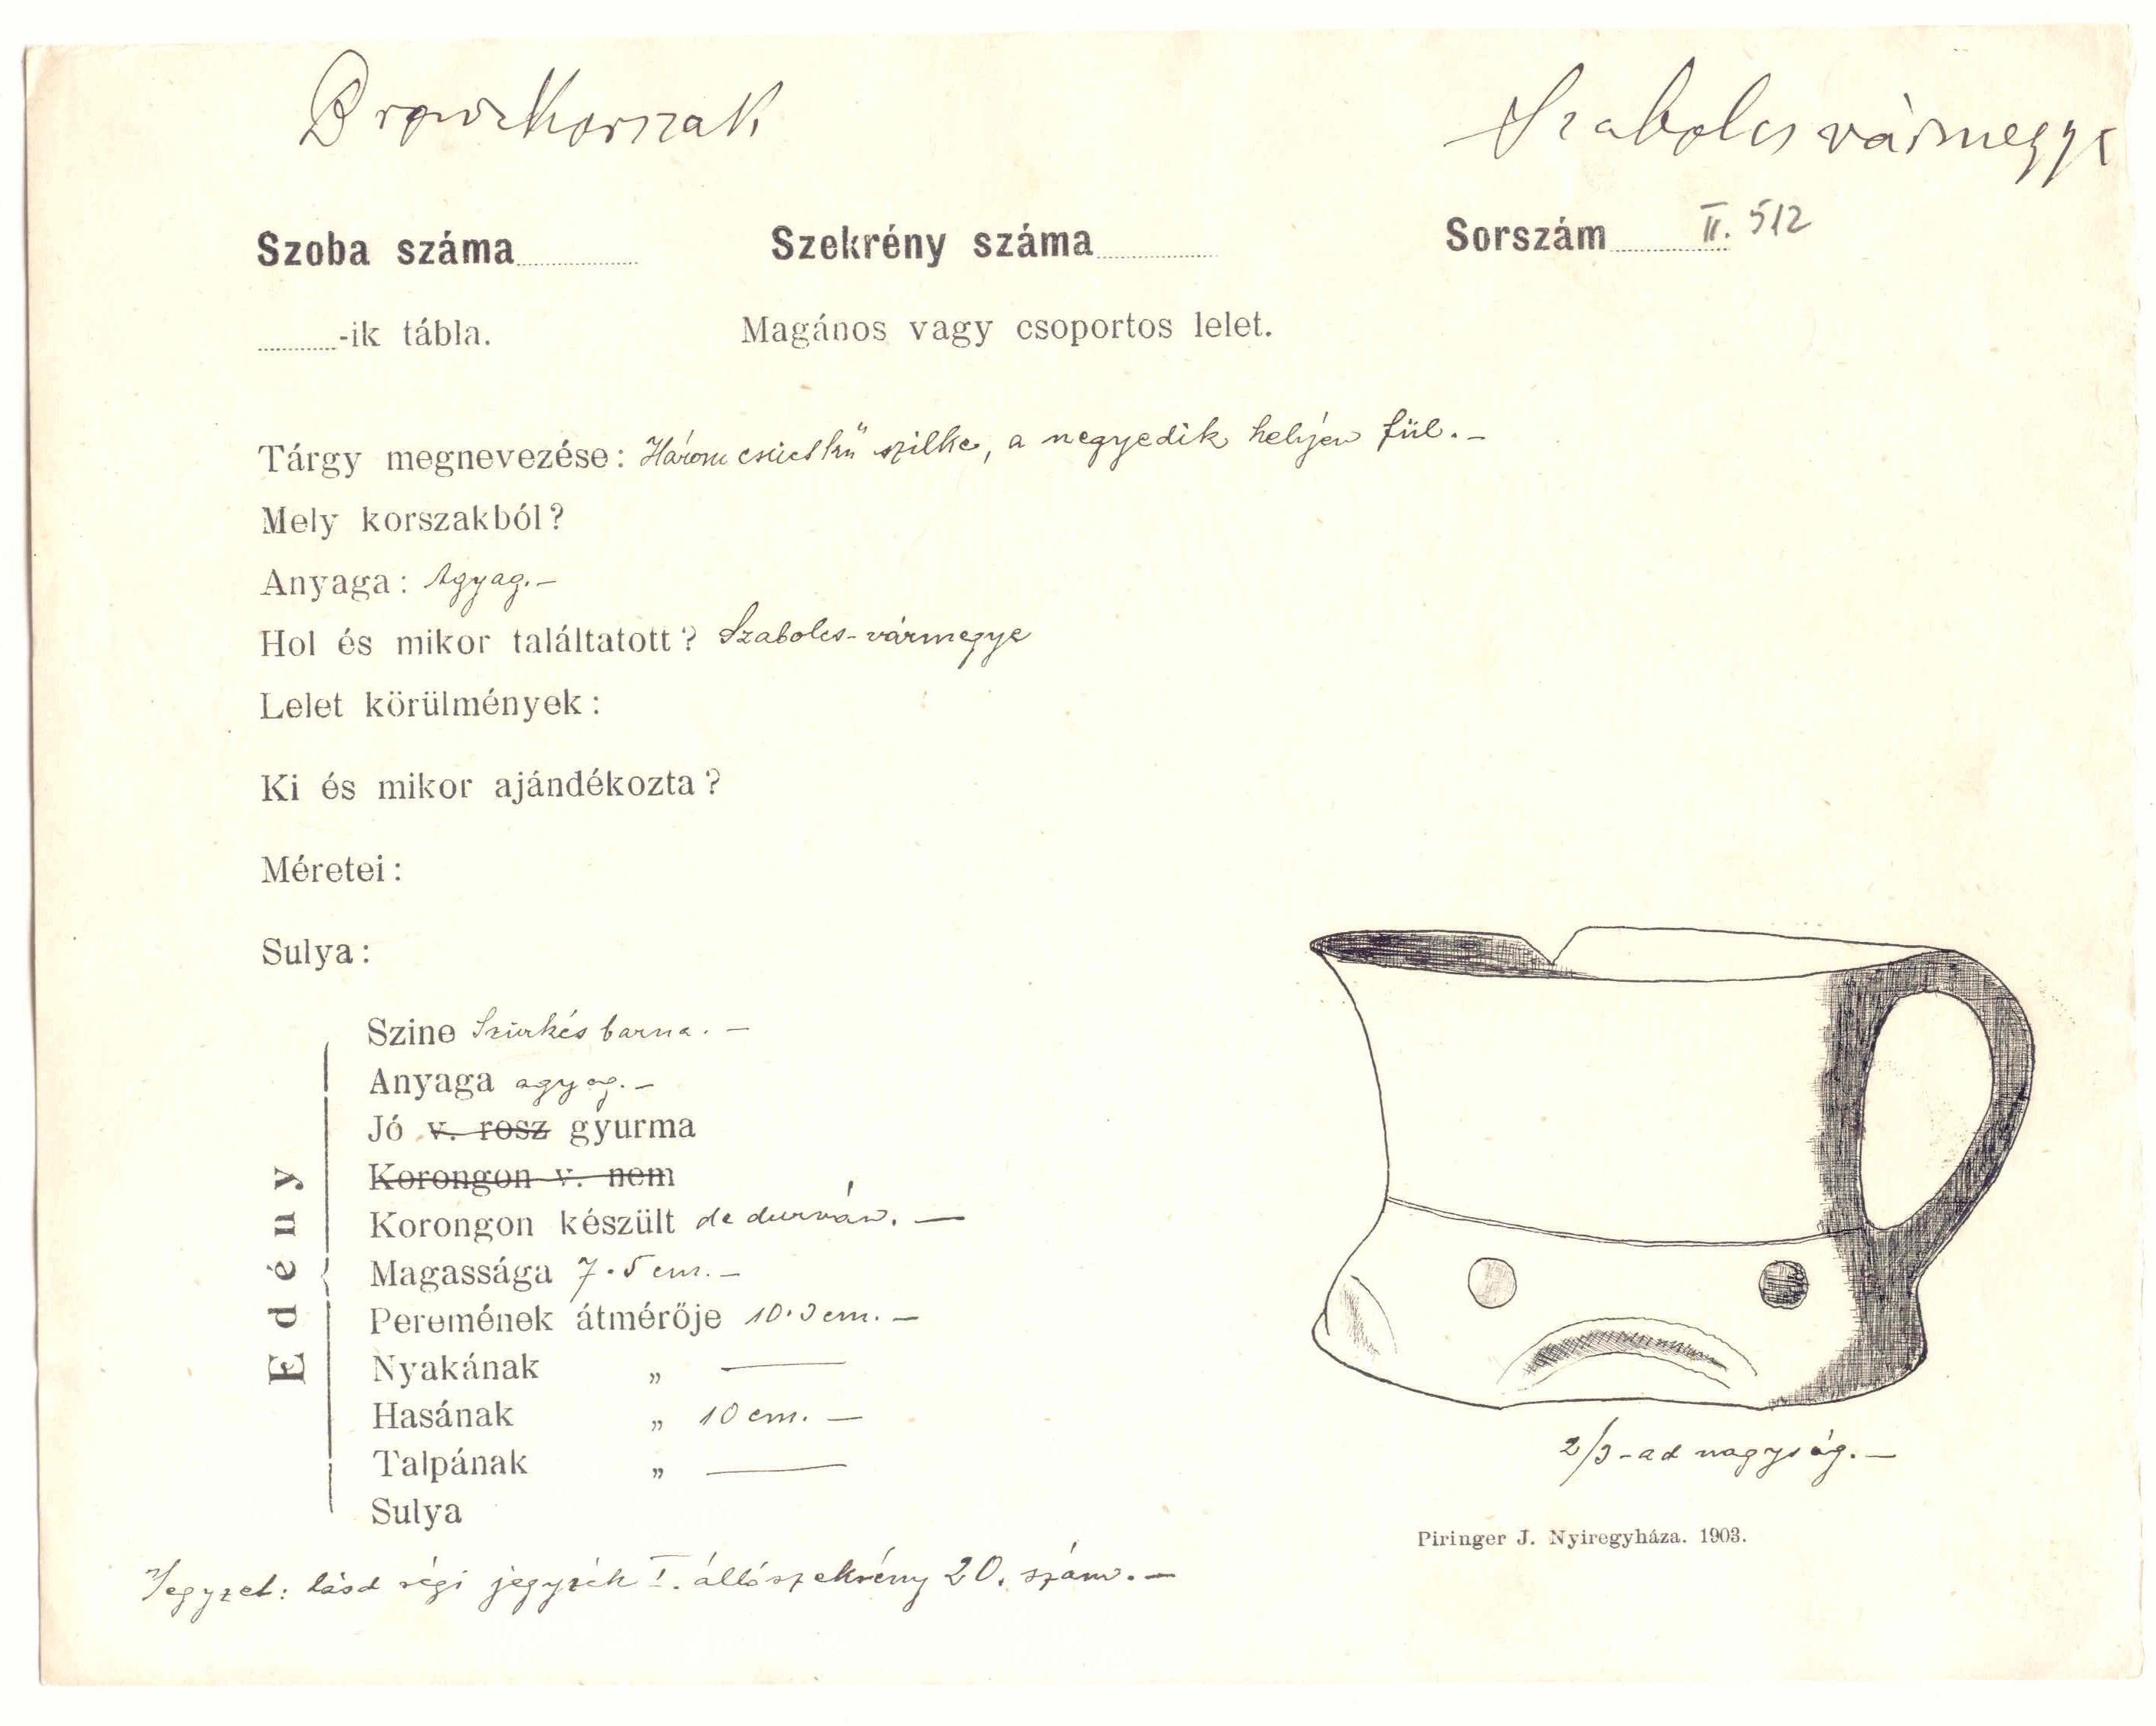 Bronzkorszak Szabolcs vármegye
Szoba száma Szekrény száma Sorszám II. 512
-ik tábla. Magános vagy csoportos lelet.
Tárgy megnevezése: Három csücskű szilke, a negyedik helyén fül. -
Mely korszakból?
Anyaga: Agyag. -
Hol és mikor találtatott? Szabolcs-vármegye
Lelet körülmények:
Ki és mikor ajándékozta?
Méretei:
Sulya:
Edény
Szine Szürkés barna. -
Anyaga agyag. -
Jó v. rosz gyurma
Korongon v. nem
Korongon készült de durván. —
Magassága 7·5 cm. -
Peremének átmérője 10·3 cm. -
Nyakának „ —
Hasának „ 10 cm. —
Talpának „ —
Sulya
2/3-ad nagyság. -
Piringer J. Nyiregyháza. 1903.
Jegyzet: lásd régi jegyzék I. állószekrény 20. szám. -